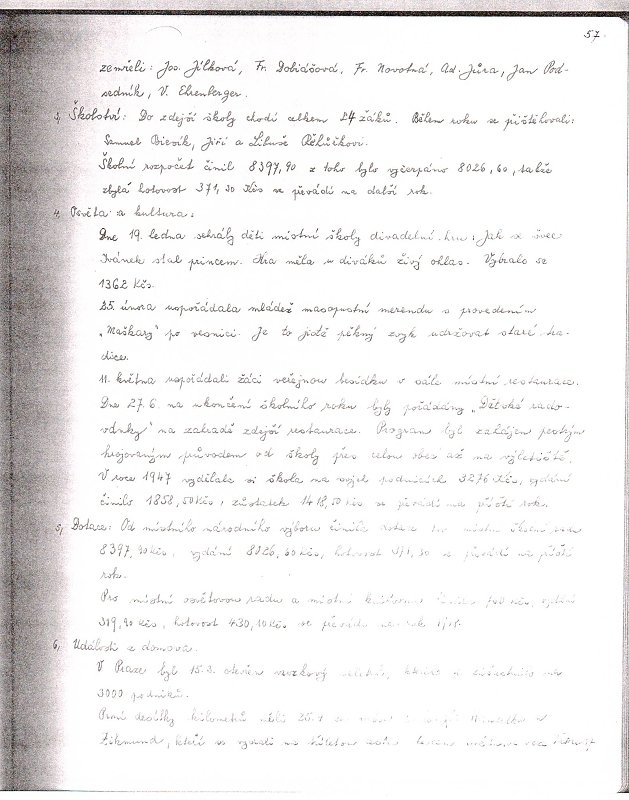 57.
zemřeli: Jos. Jílková, Fr. Dobiášová, Fr. Novotná, Ad. Jůra, Jan Pod-
sedník, V. Ehrenberger.
3, Školství: Do zdejší školy chodí celkem 24 žáků. Během roku se přistěhovali:
Samuel Jiří a Libuše
Školní rozpočet činil 8397,90 z toho bylo vyčerpáno 8026,60, takže
zbylá hotovost 371,30 Kčs se převádí na další rok.
4, Osvěta a kultura:
Dne 19. ledna sehrály děti místní školy divadelní hru: Jak se švec
Ivánek stal princem. Hra měla u diváků živý ohlas. Vybralo se
1362 Kčs.
25. února uspořádala mládež masopustní merendu s provedením
„Maškary" po vesnici. Je to jistě pěkný zvyk udržovat staré tra-
dice.
11. května uspořádali žáci veřejnou besídku v sále místní restaurace.
Dne 27.6. na ukončení školního roku byly pořádány „Dětské rado-
vánky" na zahradě zdejší restaurace. Program byl zahájen pestrým
krojovaným průvodem od školy přes celou obec až na výletiště.
V roce 1947 vydělala si škola na svých podnicích 3276 Kčs, vydání
činilo 1858,50 Kčs, zůstatek 1418,50 Kčs se převádí na příští rok.
5, Dotace: Od místního národního výboru činila dotace místní školní radu
8397,90 Kčs, vydání 8026,60 Kčs, hotovost 371,30 se převádí na příští
rok.
Pro místní osvětovou radu a místní knihovnu Kčs, vydání
319,90 Kčs, hotovost 430,10 Kčs se převádí na rok
6, Události z domova.
V Praze byl 15.3. otevřen veletrh,
3000 podniků.
První desítky kilometrů měli Hanzelka a
Zikmund, kteří se vydali na cestu